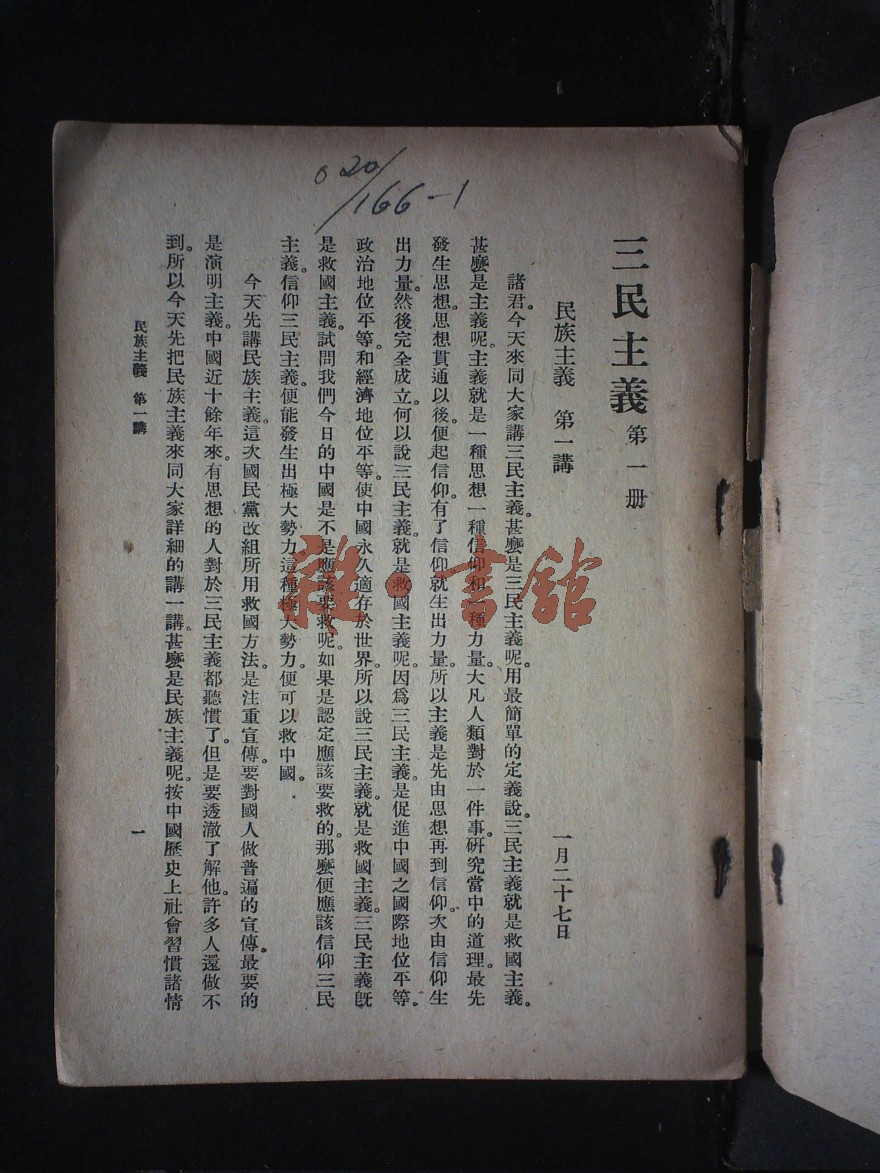 020/166-1
三民主義 第一册
民族主義 第一講 一月二十七日
諸君。今天來同大家講三民主義。甚麼是三民主義呢。用最簡單的定義說。三民主義就是救國主義。
甚麼是主義呢。主義就是一種思想一種信仰和一種力量。大凡人類對於一件事。研究當中的道理。最先
發生思想。思想貫通以後。便起信仰。有了信仰就生出力量。所以主義是先由思想再到信仰。次由信仰生
出力量。然後完全成立。何以說三民主義。就是救國主義呢。因爲三民主義。是促進中國之國際地位平等。
政治地位平等。和經濟地位平等。使中國永久適存於世界。所以說三民主義。就是救國主義。三民主義旣
是救國主義。試問我們今日的中國是不是應該要救呢。如果是認定應該要救的。那麼便應該信仰三民
主義。信仰三民主義。便能發生出極大勢力。這種極大勢力。便可以救中國。
今天先講民族主義。這次國民黨改組所用救國方法。是注重宣傳。要對國人做普遍的宣傳。最要的
是演明主義。中國近十餘年來。有思想的人對於三民主義都聽慣了。但是要透澈了解他。許多人還做不
到。所以今天先把民族主義來同大家詳細的講一講。甚麼是民族主義呢。按中國歷史上社會習慣諸情
民族主義 第一講 一
雜·書舘